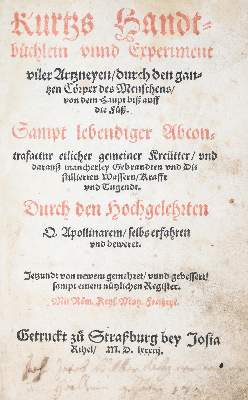 Kurtzs Handt-
büchlein vnnd Experiment
viler Artzneyen/ durch den gan-
tzen Cörper des Menschens/
von dem Haupt biß auff
die Füß.
Sampt lebendiger Abcon-
trafactur etlicher gemeiner Kreütter/ vnd
darauß mancherley Gebrandten vnd Di-
stillierten Wassern/ Krafft
vnd Tugendt.
Durch den Hochgelehrten
Q. Apollinarem/ selbs erfahren
vnd beweret.
Jetzundt von newem gemehret/ vnnd gebessert/
sampt einem nützlichen Register.
Mit Röm. Keys. May. Freiheyt.
Getruckt zů Straßburg bey Josia
Rihel/ M. D. lxxxij.